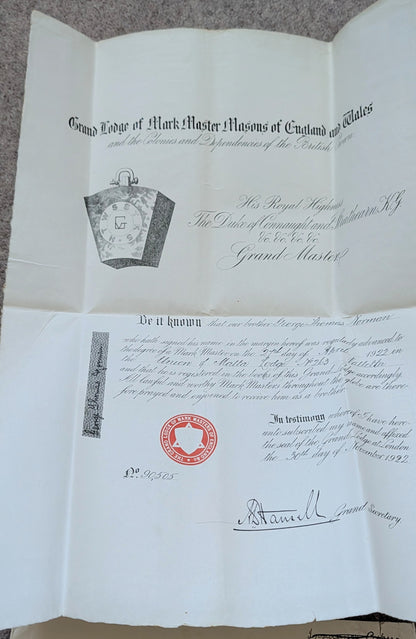 Grand Lodge of Mark Master Masons of England and Wales
and the Colonies and Dependencies of the British Crown
His Royal Highness
The Duke of Connaught and Strathearn, K.G
&c. &c. &c. &c.
Grand Master
Be it known that our brother George Thomas Norman
who hath signed his name in the margin hereof was regularly advanced to
the degree of a Mark Master on the day of April 1922 in
the Union of Malta Lodge No
and that he is registered in the books of this Grand Lodge accordingly.
All lawful and worthy Mark Masters throughout the globe are there-
fore prayed and enjoined to receive him as a brother.
In testimony whereof I have here
unto subscribed my name and affixed
the seal of the Grand Lodge at London
the 30th day of November 1922
THE GRAND LODGE OF MARK MASTER MASONS OF ENGLAND &c
No. 90,505
Grand Secretary.